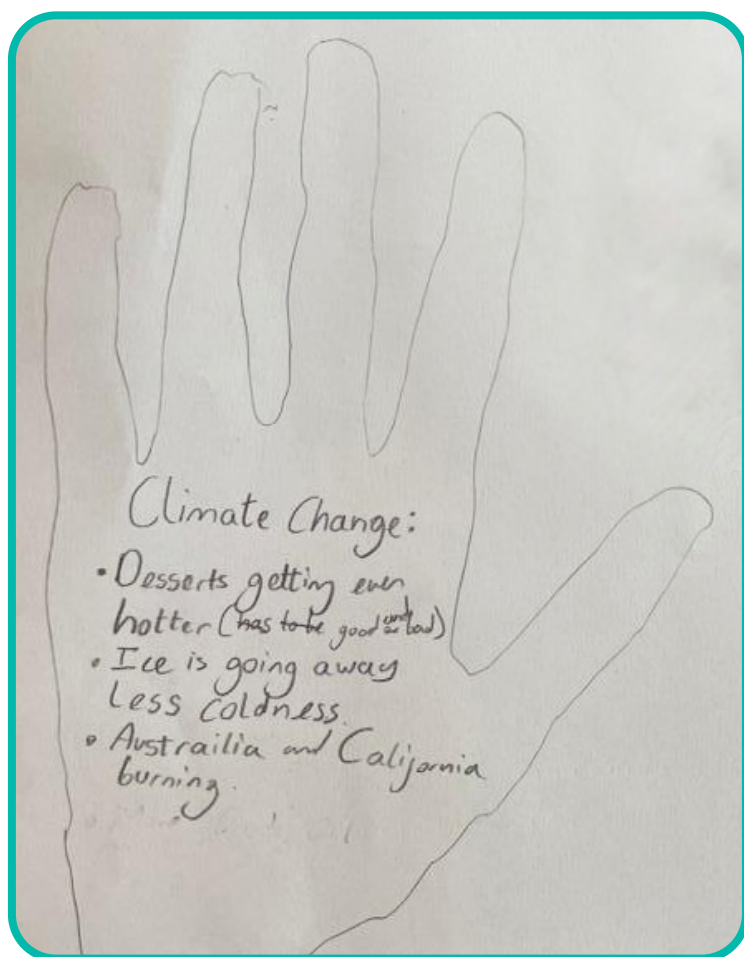 Climate Change:
• Desserts getting even
hotter (has to be good and or bad)
• Ice is going away
Less coldness.
• Austrailia and California
burning.